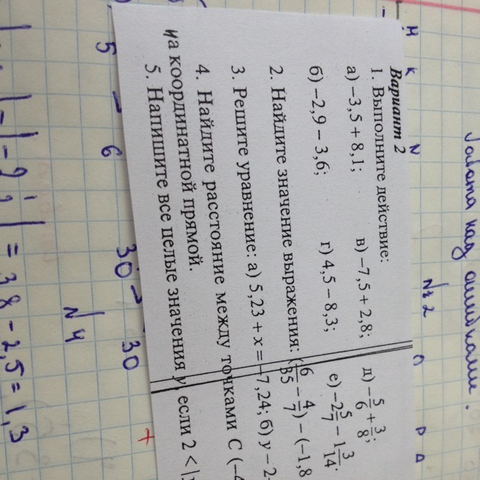 Вариант 2
1. Выполните действие:
а) −3,5 + 8,1; в) −7,5 + 2,8; д) −5/6 + 3/8;
б) −2,9 − 3,6; г) 4,5 − 8,3; е) −2 5/7 − 1 3/14.
2. Найдите значение выражения: (6/35 − 4/7) − (−1,8
3. Решите уравнение: а) 5,23 + x = −7,24; б) y − 2
4. Найдите расстояние между точками C (−4
на координатной прямой.
5. Напишите все целые значения y, если 2 < |
Работа над ошибками.
№2
5
6
30
30
№4
= 3,8 − 2,5 = 1,3